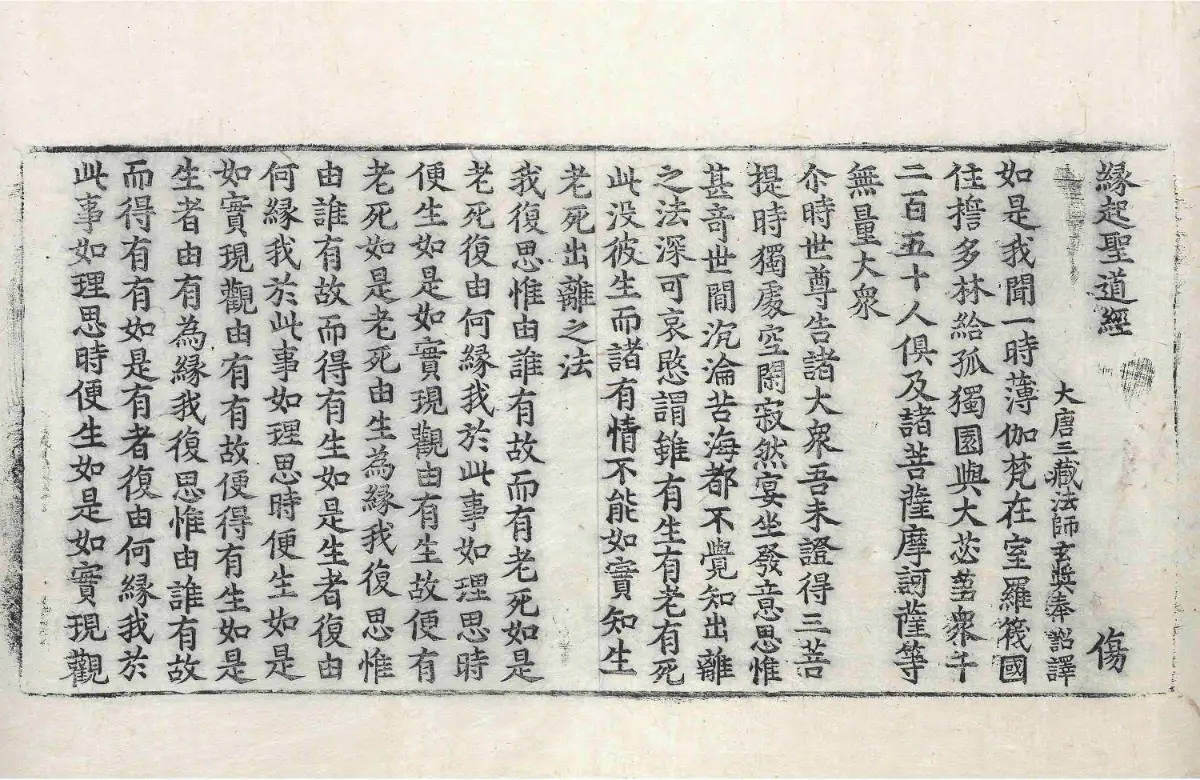 緣起聖道經 傷
大唐三藏法師玄奘奉詔譯
如是我聞一時薄伽梵在室羅筏國
住擔多林給孤獨園與大苾芻衆千
二百五十人俱及諸菩薩摩訶薩等
無量大衆
尒時世尊告諸大衆吾未證得三菩
提時獨處空閑寂然宴坐發意思惟
甚奇世間沉淪苦海都不覺知出離
之法深可哀愍謂雖有生有老有死
此没彼生而諸有情不能如實知生
老死出離之法
我復思惟由誰有故而有老死如是
老死復由何緣我於此事如理思時
便生如是如實現觀由有生故便有
老死如是老死由生為緣我復思惟
由誰有故而得有生如是生者復由
何緣我於此事如理思時便生如是
如實現觀由有有故便得有生如是
生者由有為緣我復思惟由誰有故
而得有有如是有者復由何緣我於
此事如理思時便生如是如實現觀